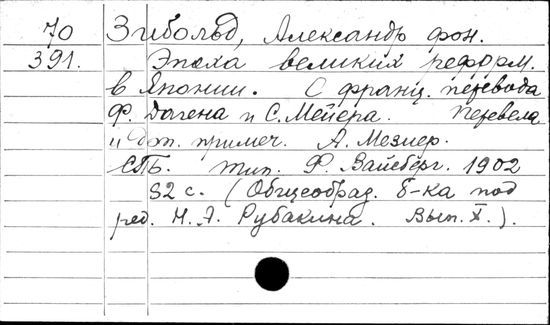 70 Зибольд, Александр фон.
391. Эпоха великих реформ.
в Японии. С франц. перевода
Ф. Дагена и С. Мейера. Перевела
и доп. примеч. А. Мезиер.
СПБ. Тип. Ф. Вайсберг. 1902
82 с. (Общеобраз. б-ка под
ред. Н. А. Рубакина. Вып. X.).